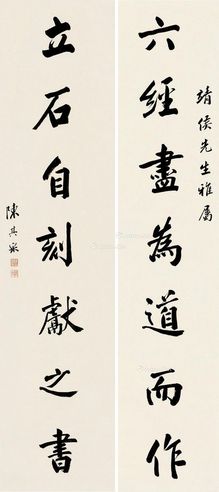 靖侯先生雅屬
六經盡為道而作
立石自刻獻之書
陳其采